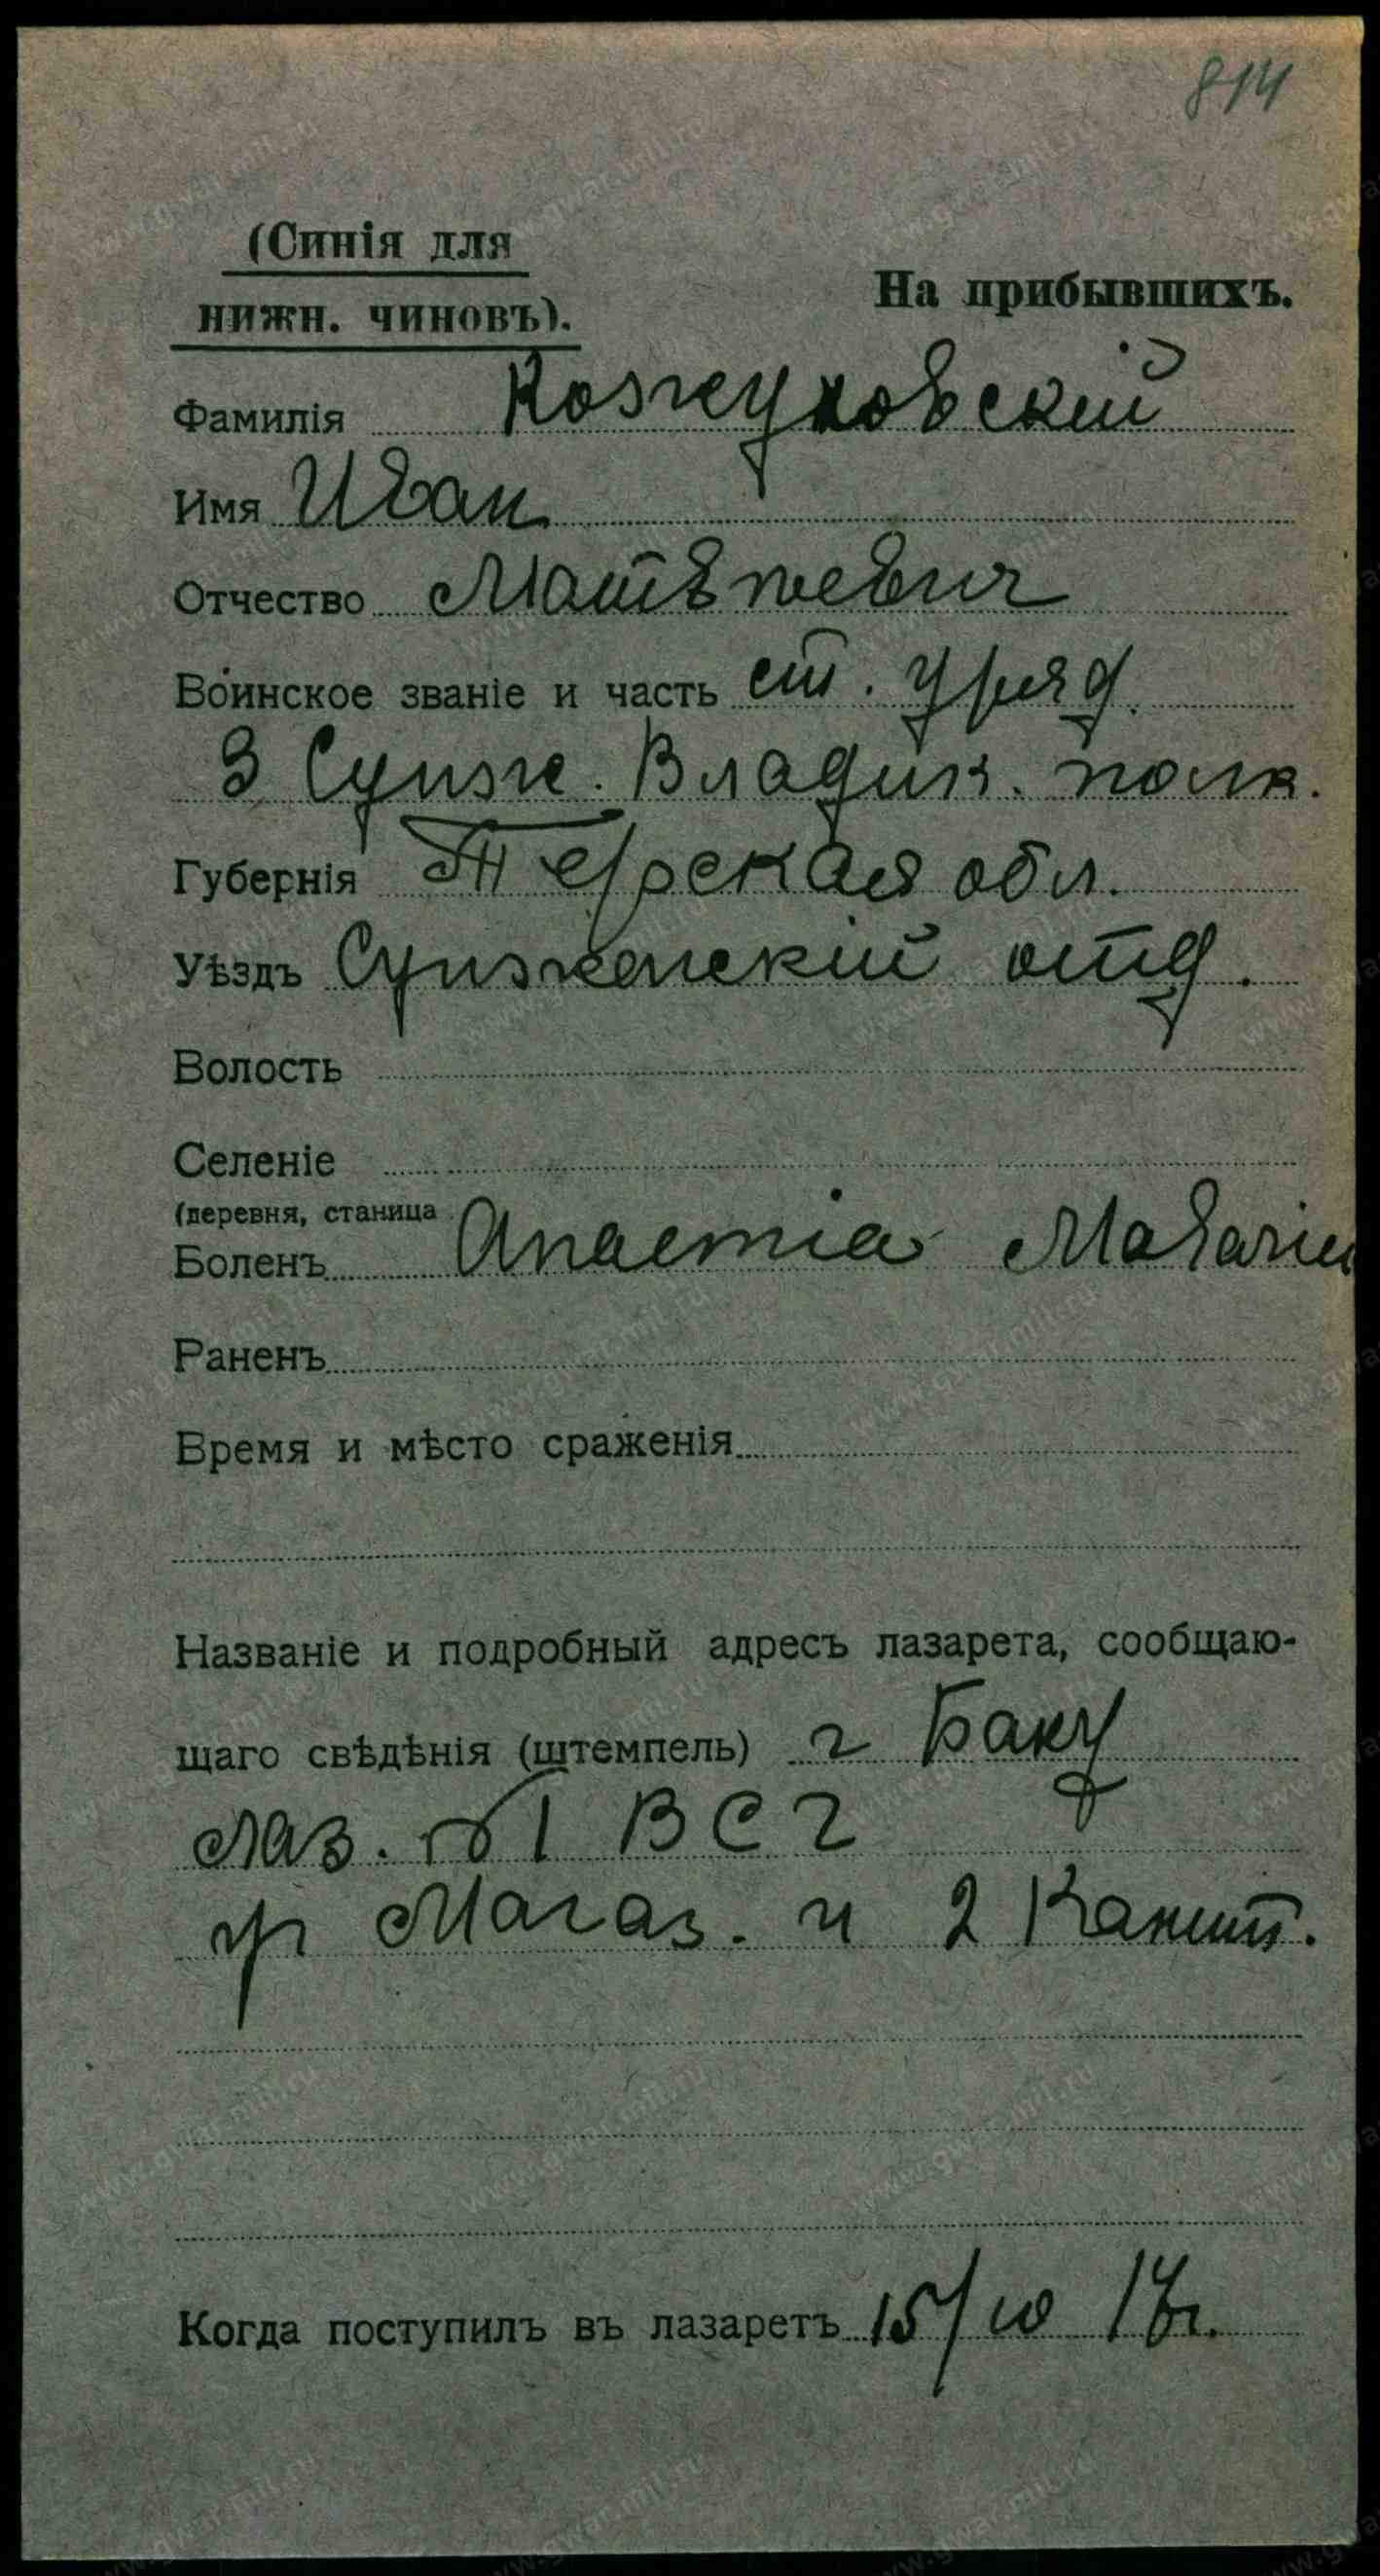 814
(Синія для
нижн. чиновъ).
На прибывшихъ.
Фамилія Кожуховскій
Имя Иван
Отчество Матвѣевич
Воинское званіе и часть ст. уряд.
3 Сунж. Владик. полк.
Губернія Терская обл.
Уѣздъ Сунженскій отд.
Волость
Селеніе
(деревня, станица
Боленъ Anaemia
Раненъ
Время и мѣсто сраженія
Названіе и подробный адресъ лазарета, сообщаю-
щаго свѣдѣнія (штемпель) г Баку
Лаз. № 1 В С Г
Магаз. и 2
Когда поступилъ въ лазаретъ 15/10 17г.